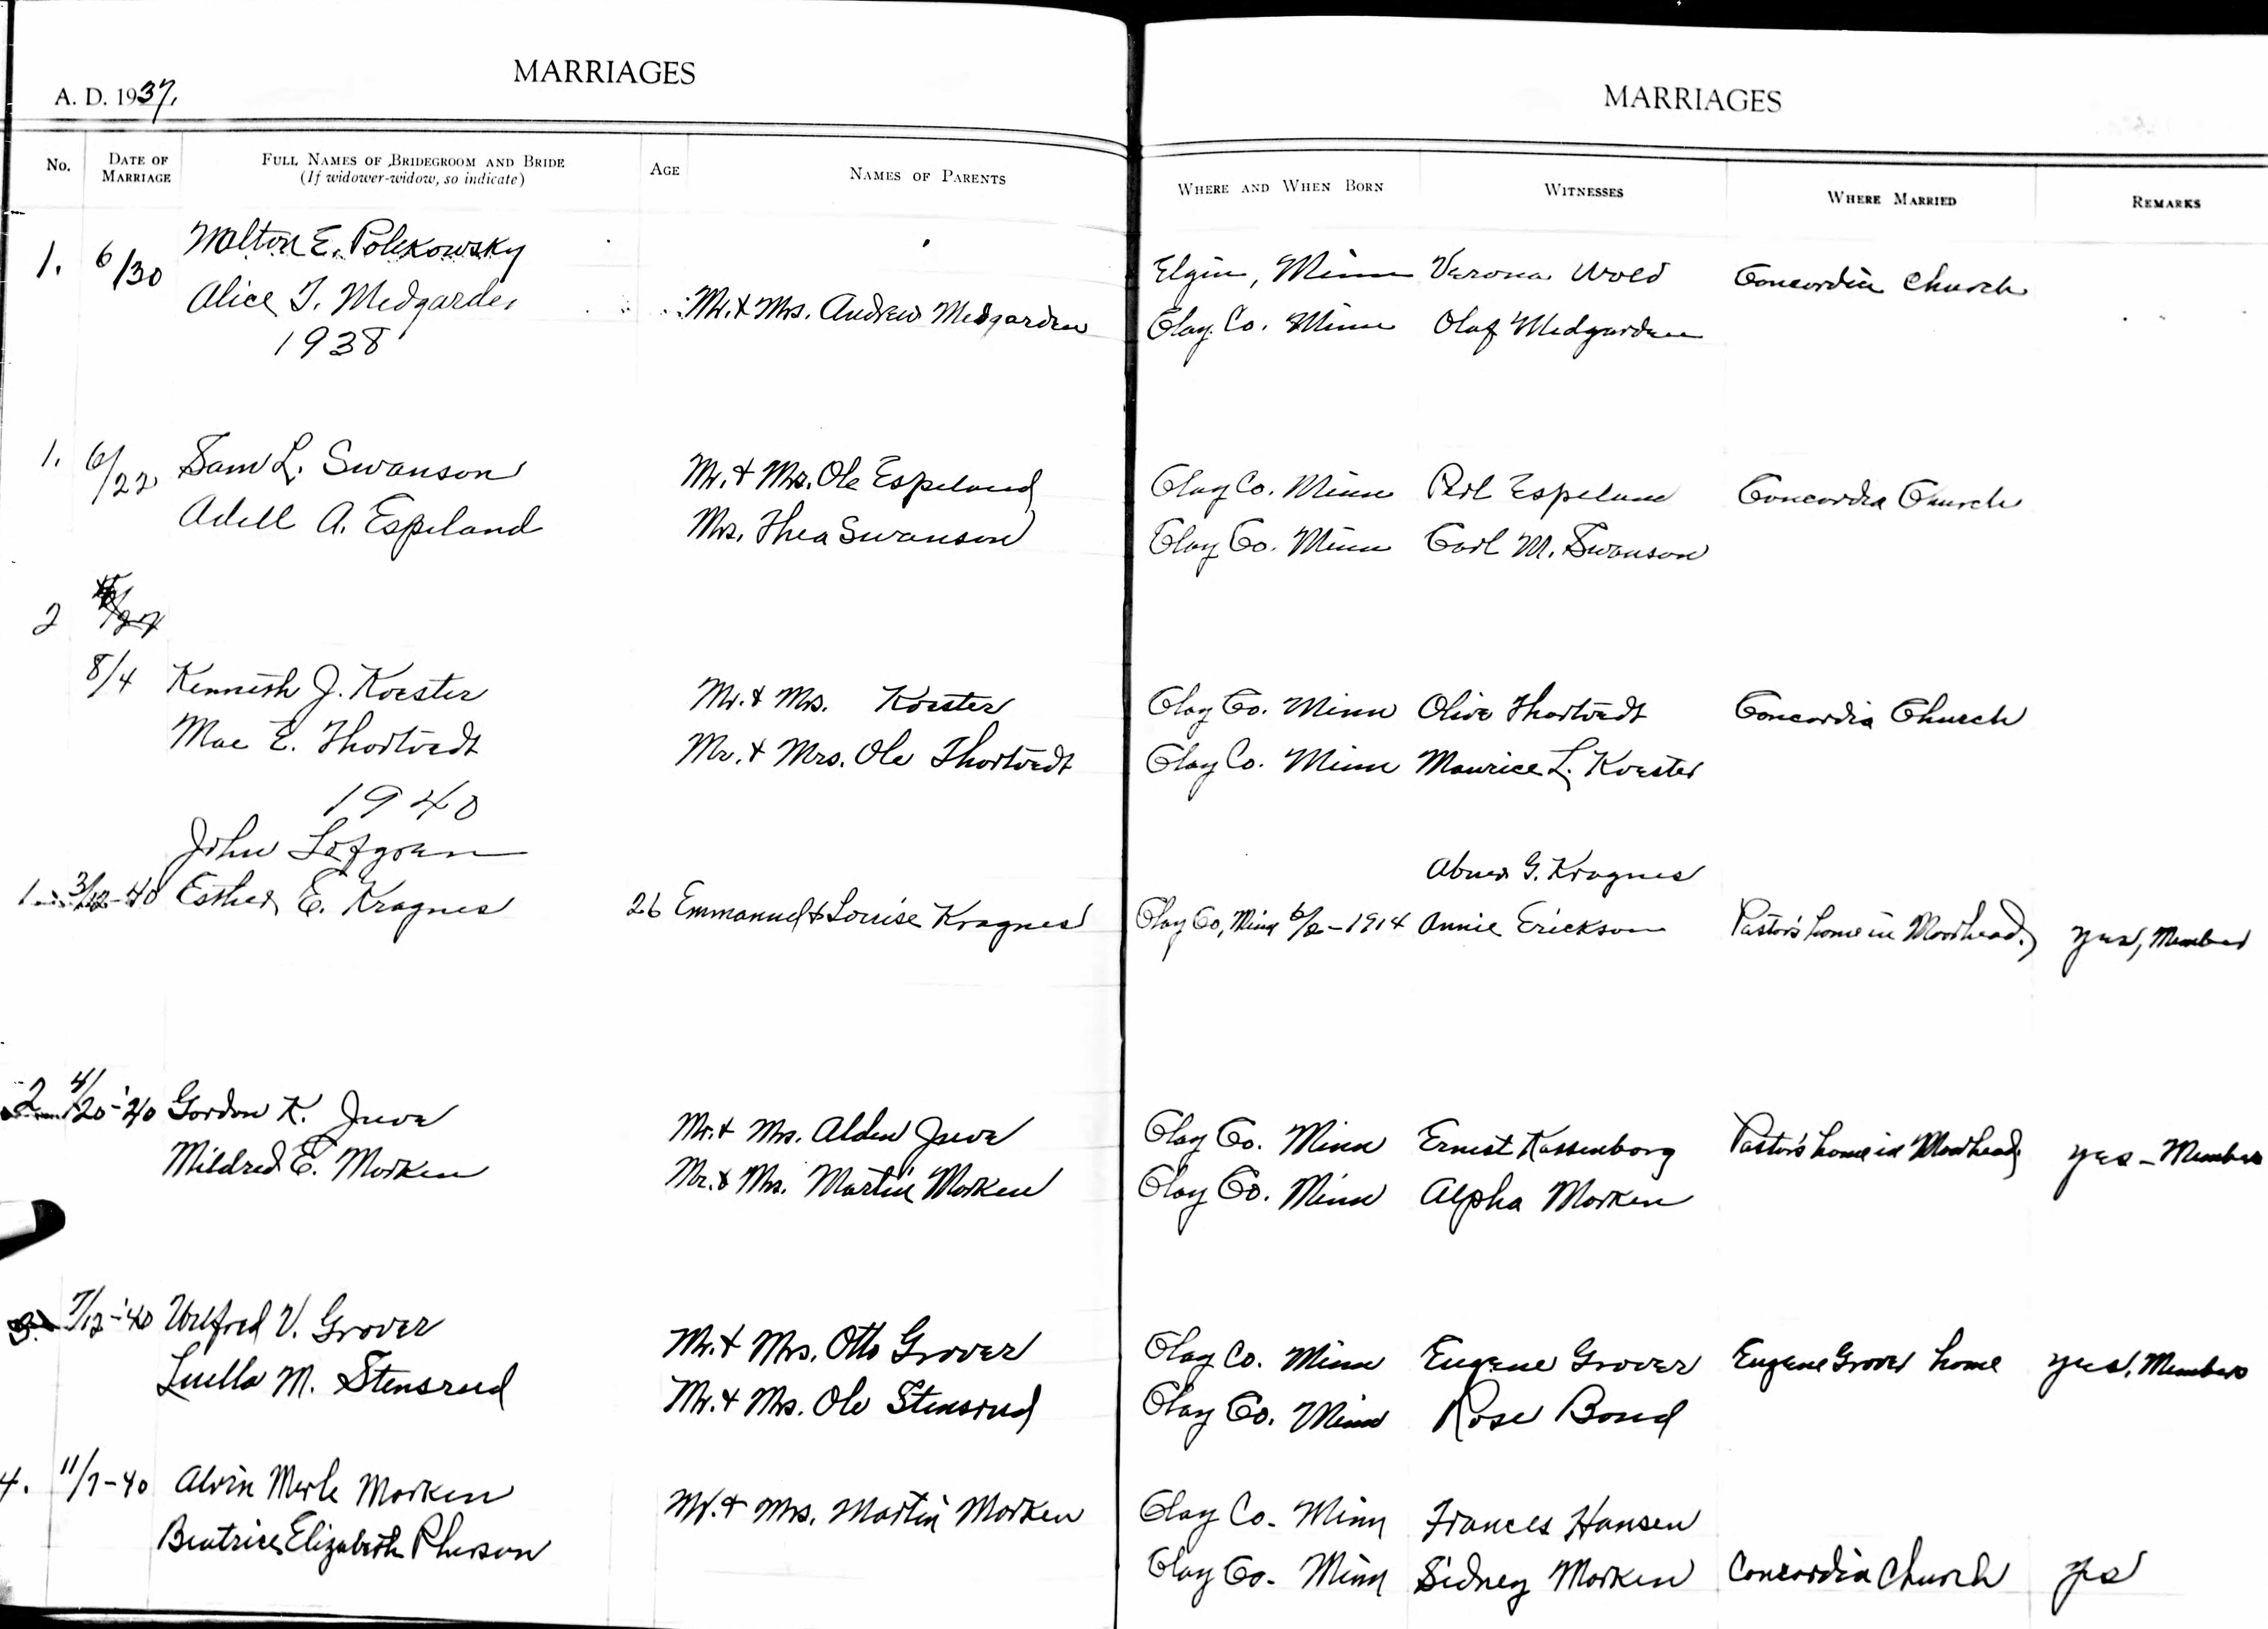 MARRIAGES
A. D. 1937.
No. DATE OF MARRIAGE FULL NAMES OF BRIDEGROOM AND BRIDE (If widower-widow, so indicate) AGE NAMES OF PARENTS
1. 6/30 Milton E. Polikowsky
Alice T. Medgarden Mr. & Mrs. Andrew Medgarden
1938
1. 6/22 Sam L. Swanson Mr. & Mrs. Ole Espeland
Adell A. Espeland Mrs. Thea Swanson
2
8/4 Kenneth J. Koester Mr. & Mrs. Koester
Mae E. Thortvedt Mr. & Mrs. Ole Thortvedt
1940
John Lofgren
1 3/12-40 Esther E. Kragnes 26 Emmanuel & Louise Kragnes
2 4/20-'40 Gordon K. Juve Mr. & Mrs. Alden Juve
Mildred E. Morken Mr. & Mrs. Martin Morken
3. 7/12-'40 Wilfred V. Grover Mr. & Mrs. Otto Grover
Luella M. Stensrud Mr. & Mrs. Ole Stensrud
4. 11/7-40 Alvin Merle Morken Mr. & Mrs. Martin Morken
Beatrice Elizabeth Pherson
MARRIAGES
WHERE AND WHEN BORN WITNESSES WHERE MARRIED REMARKS
Elgin, Minn Verona Wold Concordia Church
Clay Co. Minn Olaf Medgarden
Clay Co. Minn Espeland Concordia Church
Clay Co. Minn Carl M. Swanson
Clay Co. Minn Olive Thortvedt Concordia Church
Clay Co. Minn Maurice L. Koester
Abner G. Kragnes
Clay Co, Minn 6/2-1914 Annie Erickson Pastor's home in Moorhead. yes, Member
Clay Co. Minn Ernest Kassenborg Pastor's home in Moorhead yes - Member
Clay Co. Minn Alpha Morken
Clay Co. Minn Eugene Grover Eugene Grover home yes, Members
Clay Co. Minn Rose Bond
Clay Co. Minn Frances Hansen
Clay Co. Minn Sidney Morken Concordia Church yes